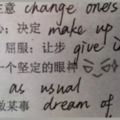 主意 change one's
心：决定 make up
屈服：让步 give i
一个坚定的眼神
as usual
做某事 dream of